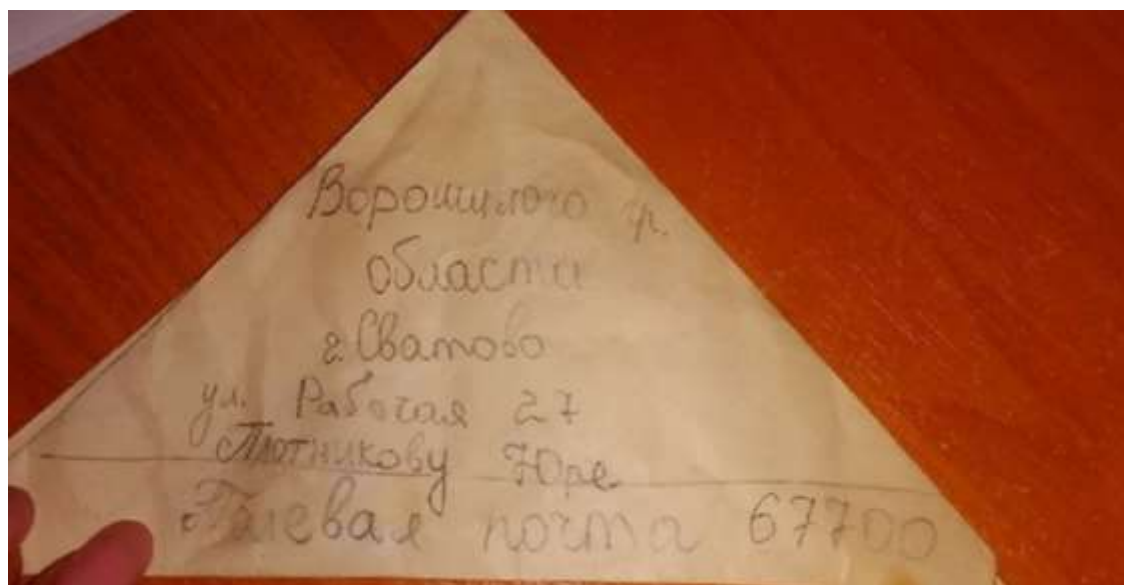 Ворошилого гр.
области
г. Сватово
ул. Рабочая 27
Плотникову Юре
Палевая почта 67700